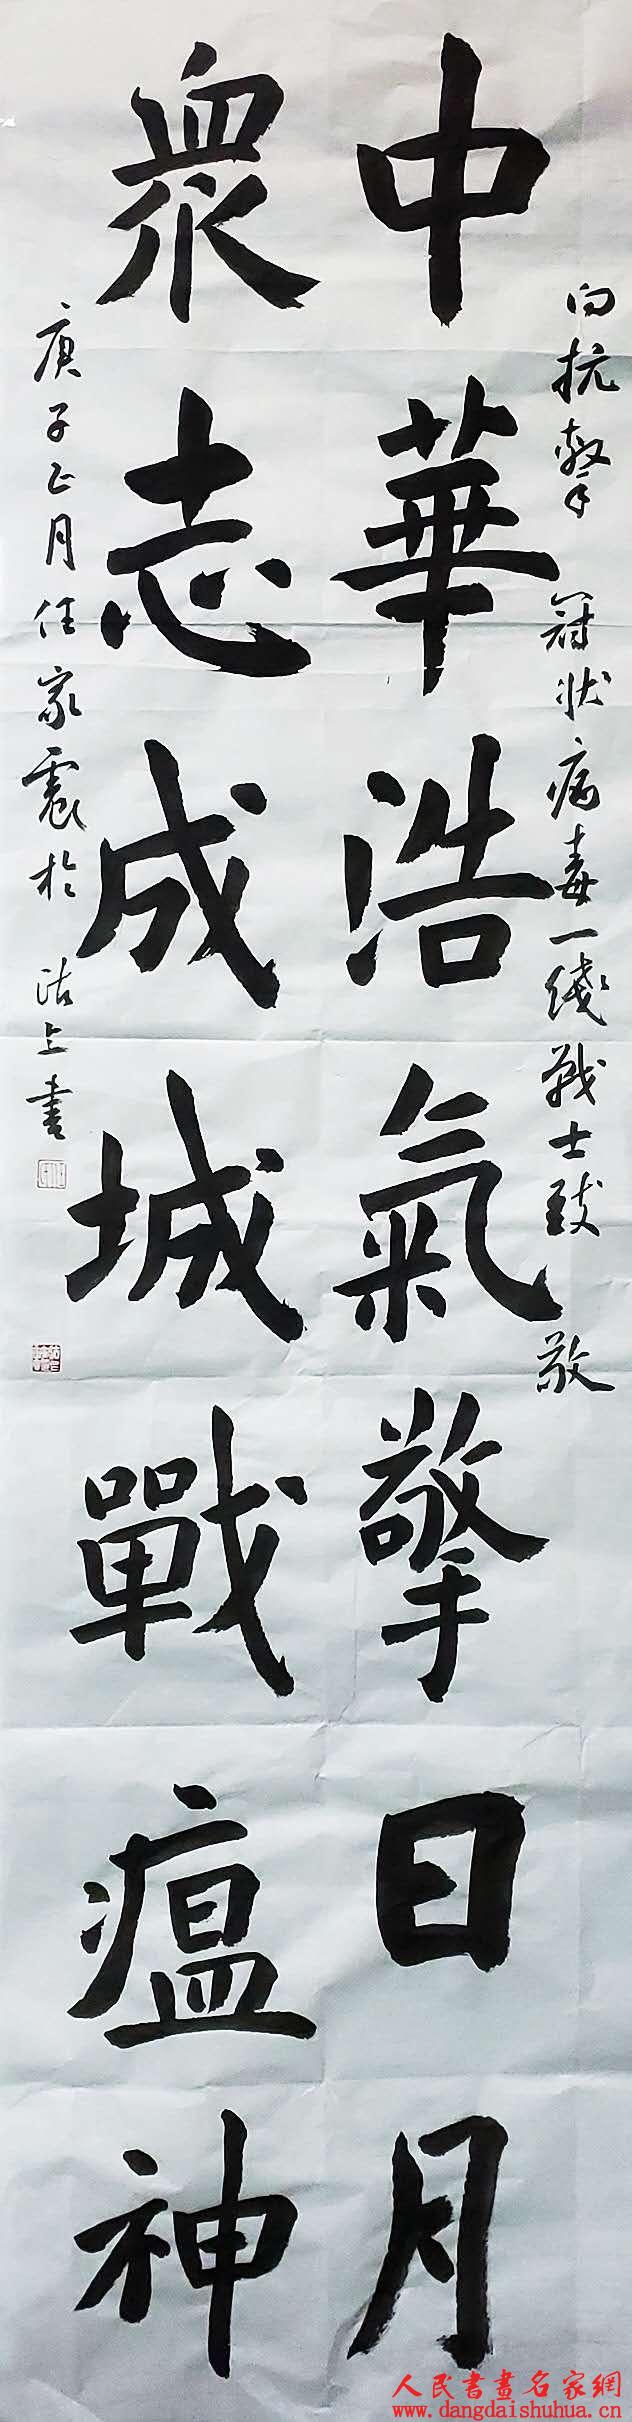 向抗擊冠状病毒一线战士致敬
中華浩氣擎日月
衆志成城戰瘟神
庚子正月任家震於沽上書
人民書畫名家網
www.dangdaishuhua.cn